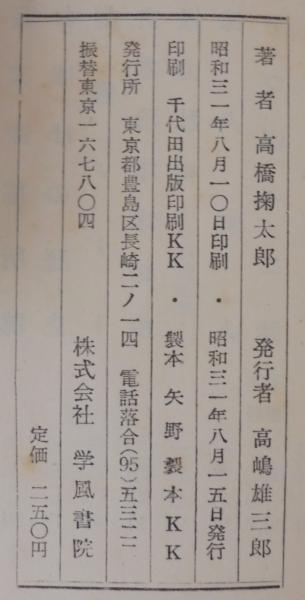 著者 高橋掬太郎 発行者 高嶋雄三郎
昭和三一年八月一〇日印刷・昭和三一年八月一五日発行
印刷 千代田出版印刷KK・製本 矢野製本KK
発行所 東京都豊島区長崎二ノ一四 電話落合(95)五三二一
振替東京一六七八〇四 株式会社 学風書院
定価 二五〇円